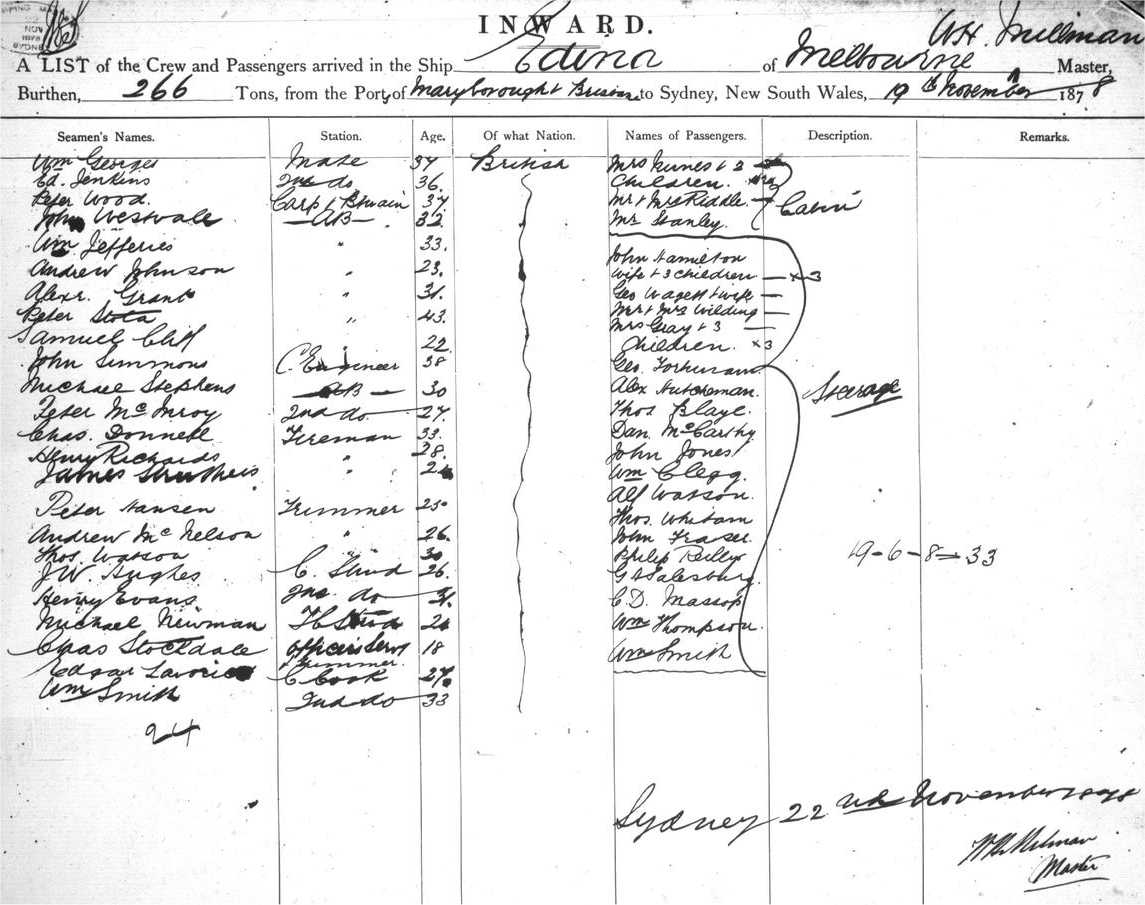 NOV
1878
SYDNEY
INWARD.
W.H. Millman
A LIST of the Crew and Passengers arrived in the Ship Edina of Melbourne Master,
Burthen, 266 Tons, from the Port of Maryborough & Brisbane to Sydney, New South Wales, 19th November 1878
Seamen's Names. Station. Age. Of what Nation. Names of Passengers. Description. Remarks.
Wm Georges Mate 37 British Mrs & 3
Ed. Jenkins 2nd do 36. Children.
Peter Wood. Carp & Bswain 37 Mr & Mrs Riddle Cabin
John Westvale AB 32 Mr Stanley.
Wm Jefferies " 33.
John Hamilton
Andrew Johnson " 23. Wife & 3 children x 3
Alexr. Grant " 31. Geo Wagett & wife
Peter Stota " 43. Mr & Mrs Wilding
Mrs Gray & 3
Samuel Cliff 22. Children. x3
John Simmons C. Engineer 38 Geo.
Michael Stephens 30 Alex Hutcheman. Steerage
Peter McInroy 2nd do 27. Thos Blaye.
Chas. Donnell Fireman 33. Dan. McCarthy
Henry Richards " 28. John Jones
James Struthers " Wm Clegg
Alf Watson.
Peter Hansen Trimmer 25 Thos. Whitam
Andrew McNelson " 26. John Fraser
Thos. Watson 30 Philip Reilly 19-6-8=33
J.W. Hughes C. Stewd 26. G A Salesbury.
Henry Evans 2nd do 31. C.D. Massop
Michael Newman Wm Thompson.
Chas Stockdale Officers Servt 18 Wm Smith
& Trimmer.
Edgar C Cook 27.
Wm Smith 2nd do 33
24
Sydney 22nd November 1878
W.H. Milman
Master